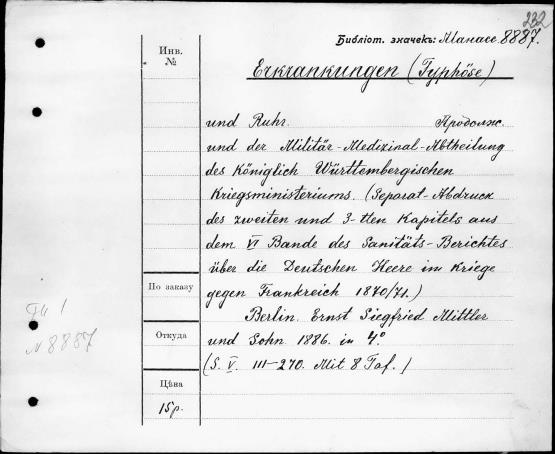 232
Библіот. значекъ: Манасс. 8887.
Инв.
№
Erkrankungen (Typhöse)
und Ruhr. Продолж.
und der Militär-Medizinal-Abtheilung
des Königlich Württembergischen
Kriegsministeriums. (Separat-Abdruck
des zweiten und 3-tten Kapitels aus
dem VI Bande des Sanitäts-Berichtes
über die Deutschen Heere im Kriege
По заказу
gegen Frankreich 1870/71.)
Berlin. Ernst Siegfried Mittler
Откуда
und Sohn 1886. in 4°
№ 8887
(S. V. III-270. Mit 8 Taf.)
Цѣна
15р.